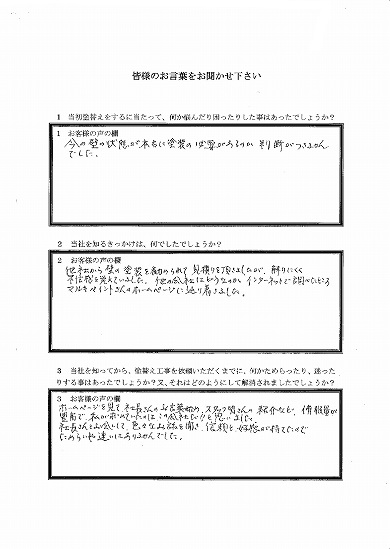 皆様のお言葉をお聞かせ下さい
1 当初塗替えをするに当たって、何か悩んだり困ったりした事はあったでしょうか?
1 お客様の声の欄
今の壁の状態が本当に塗装の必要があるのか判断がつきません
でした。
2 当社を知るきっかけは、何でしたでしょうか?
2 お客様の声の欄
他社から壁の塗装を勧められて見積りを頂きましたが、解りにくく
不信感を覚えていました。他の会社はどうなのか、インターネットで調べたところ
マルキペイントさんのホームページに辿り着きました。
3 当社を知ってから、塗替え工事を依頼いただくまでに、何かためらったり、迷った
りする事はあったでしょうか?又、それはどのようにして解消されましたでしょうか?
3 お客様の声の欄
ホームページを見て、社長さんのお言葉や、スタッフ皆さんの紹介など、情報量が
豊富で、私が求めていたのはこの会社だ!!と思いました。
社長さんとお会いして、色々なお話を聞き、信頼と好感が持てたので
ためらいや迷いはありませんでした。